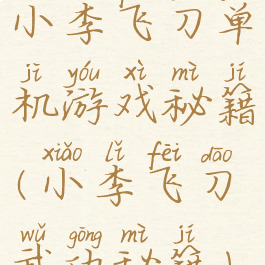 小李飞刀单
jī yóu xì mì jí
机游戏秘籍
xiǎo lǐ fēi dāo
(小李飞刀
wǔ gōng mì jí
武功秘籍)